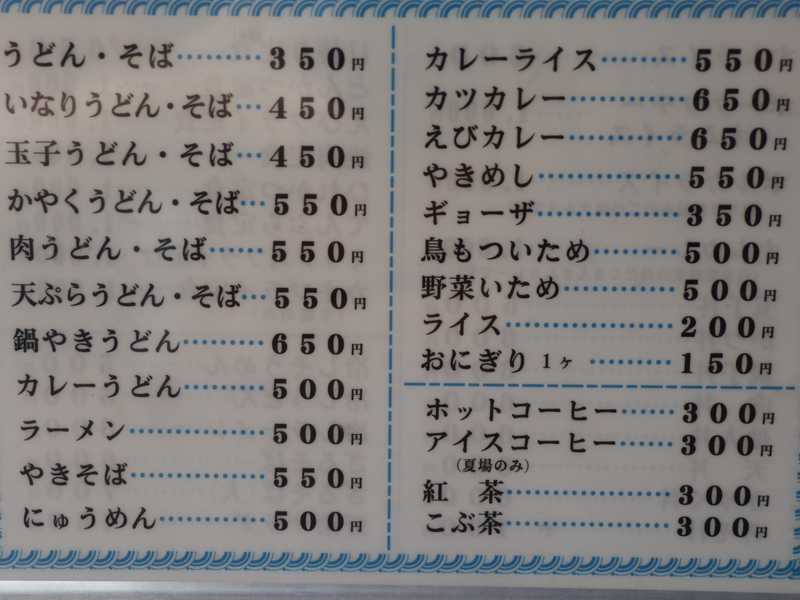 うどん・そば………350円
いなりうどん・そば…450円
玉子うどん・そば…450円
かやくうどん・そば…550円
肉うどん・そば……550円
天ぷらうどん・そば…550円
鍋やきうどん………650円
カレーうどん………500円
ラーメン……………500円
やきそば……………550円
にゅうめん…………500円
カレーライス………550円
カツカレー…………650円
えびカレー…………650円
やきめし……………550円
ギョーザ……………350円
鳥もついため………500円
野菜いため…………500円
ライス………………200円
おにぎり 1ヶ………150円
ホットコーヒー……300円
アイスコーヒー……300円
(夏場のみ)
紅　茶………………300円
こぶ茶………………300円